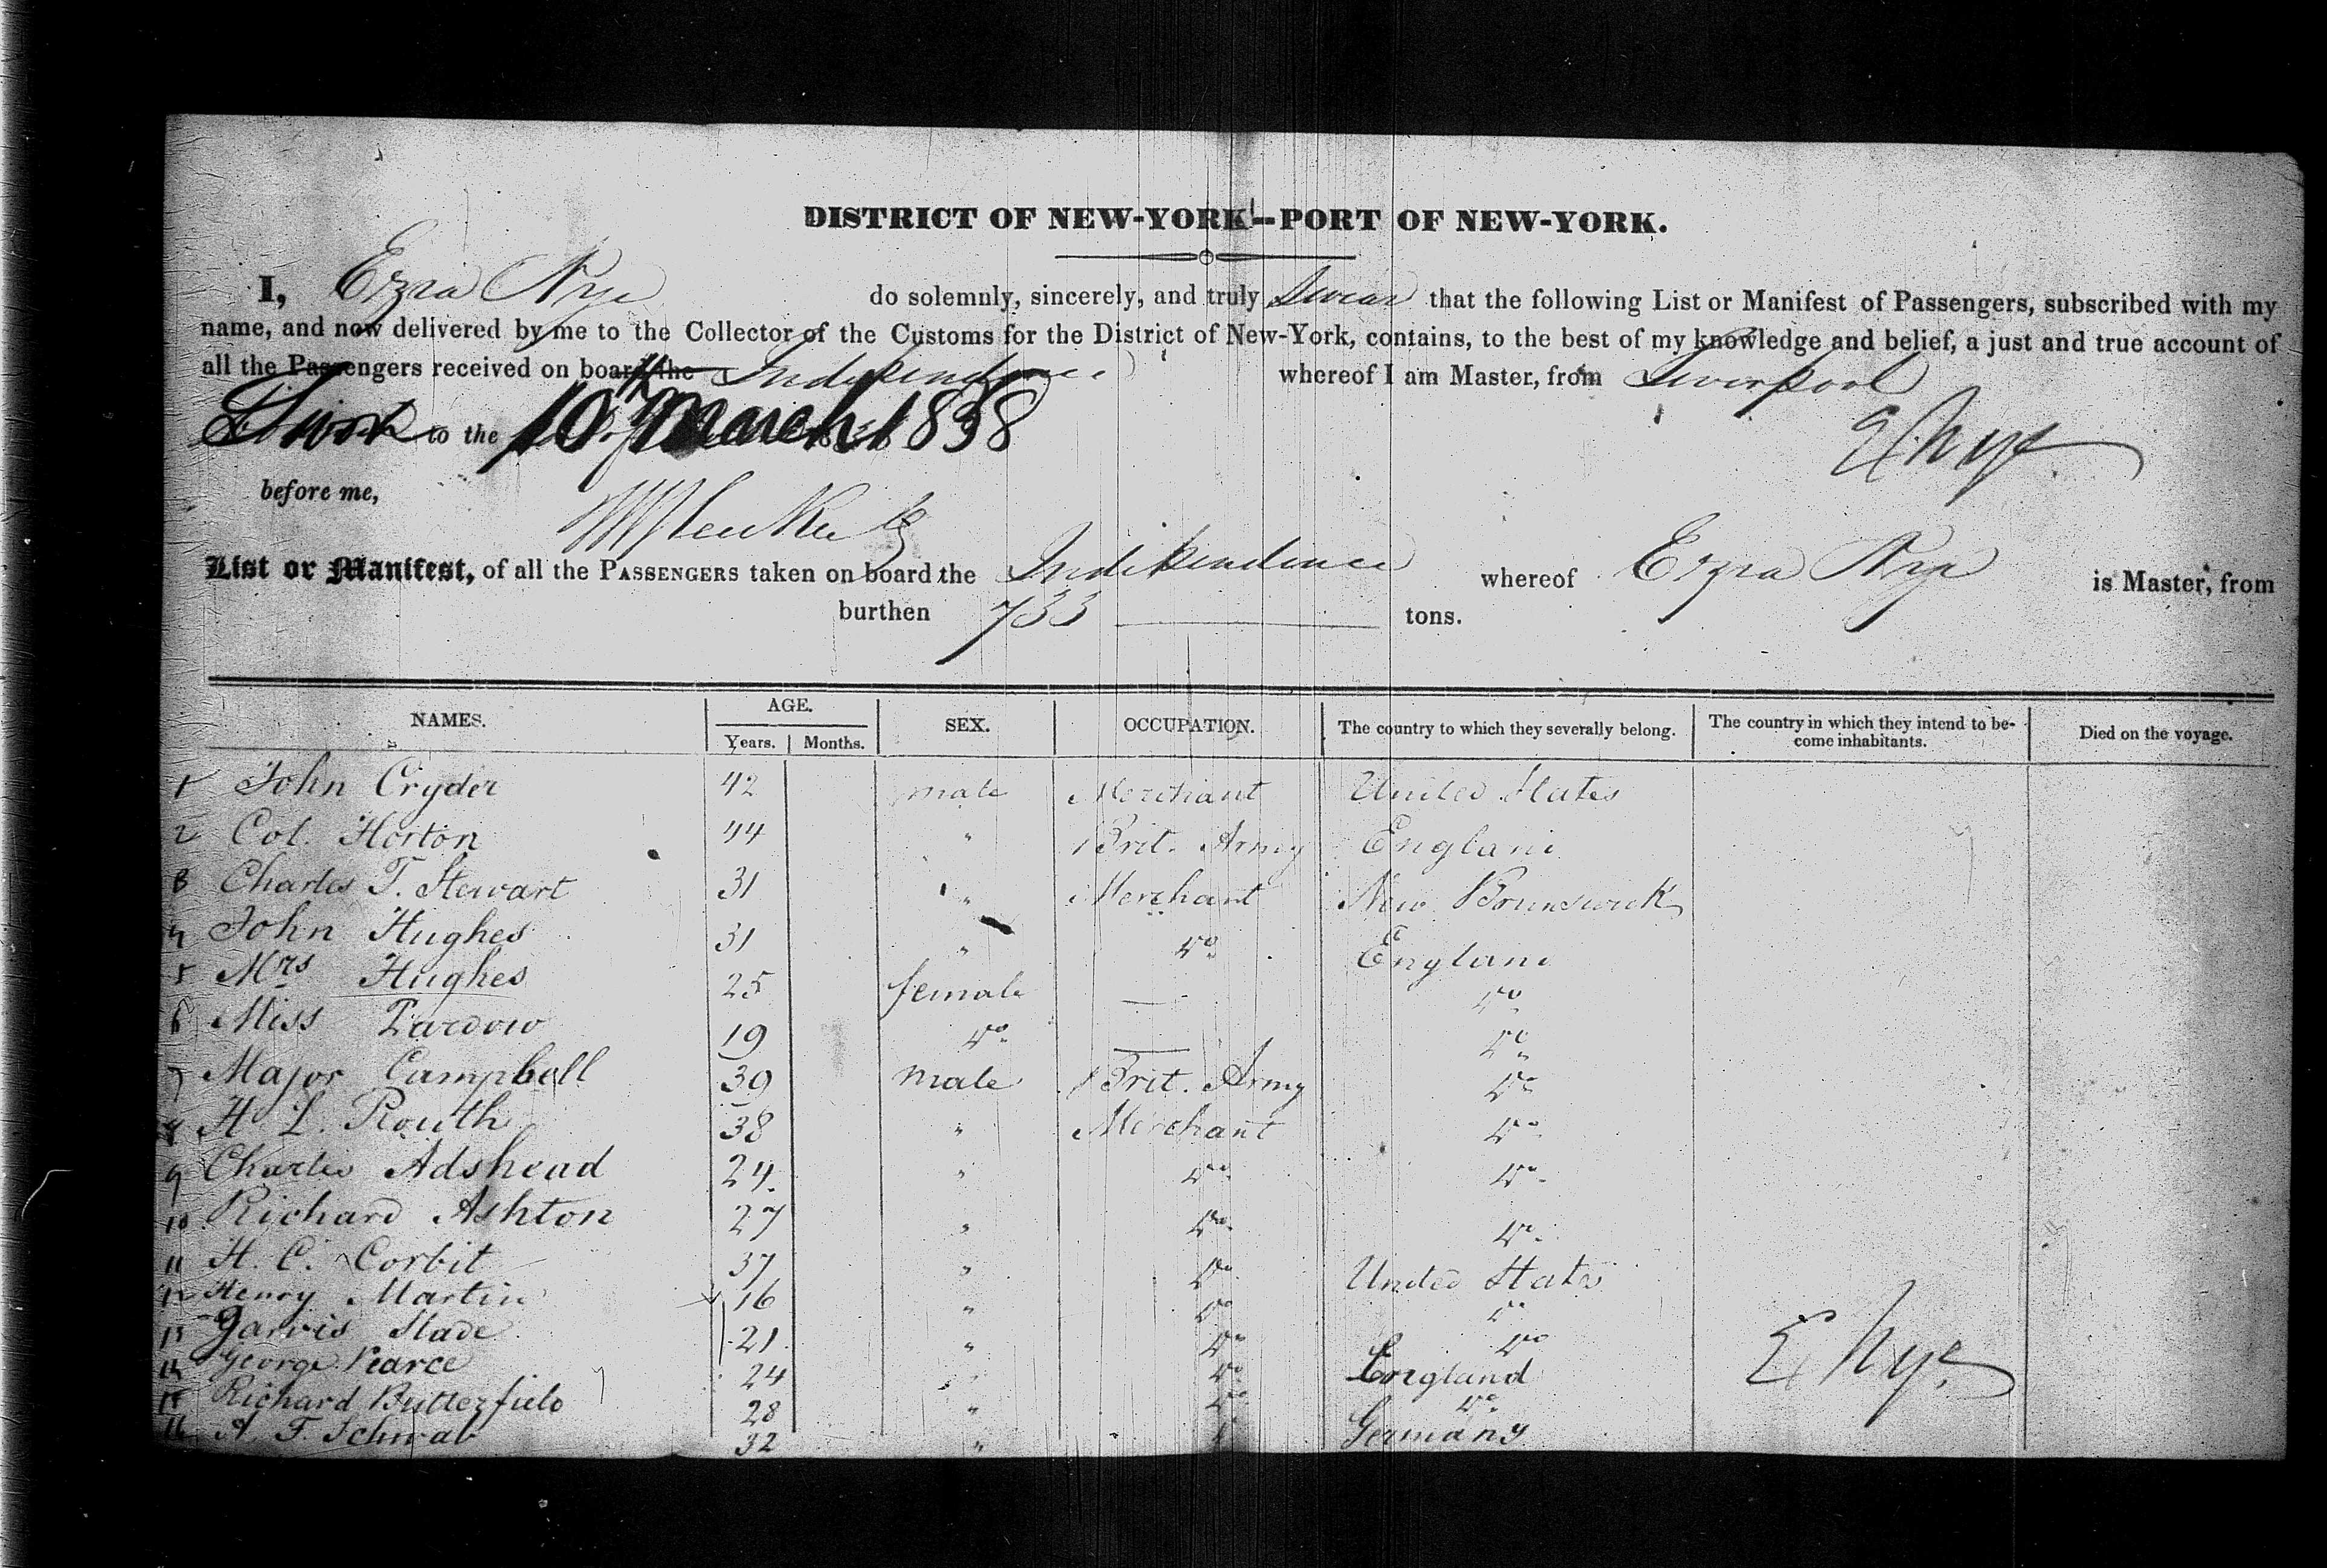 DISTRICT OF NEW-YORK—PORT OF NEW-YORK.
I, Ezra Nye do solemnly, sincerely, and truly Swear that the following List or Manifest of Passengers, subscribed with my
name, and now delivered by me to the Collector of the Customs for the District of New-York, contains, to the best of my knowledge and belief, a just and true account of
all the Passengers received on board the Independence whereof I am Master, from Liverpool
Sworn to the 10th March 1838
E Nye
before me,
List or Manifest, of all the PASSENGERS taken on board the Independence whereof Ezra Nye is Master, from
burthen 733 tons.
NAMES. AGE. Years. Months. SEX. OCCUPATION. The country to which they severally belong. The country in which they intend to become inhabitants. Died on the voyage.
1 John Cryder 42 male Merchant United States
2 Col. Horton 44 " Brit. Army England
3 Charles T. Stewart 31 " Merchant New Brunswick
4 John Hughes 31 " Do England
5 Mrs Hughes 25 female — Do
6 Miss 19 Do — Do
7 Major Campbell 39 male Brit. Army Do
8 H L. Routh 38 " Merchant Do
9 Charles Adshead 24 " Do Do
10 Richard Ashton 27 " Do Do
11 H. C. Corbit 37 " Do United States
12 Henry Martin 16 " Do Do
13 Jarvis Slade 21 " Do Do
14 George Pearce 24 " Do England
15 Richard Butterfield 28 " Do Do
16 A. F. Schwab 32 " Germany
E Nye